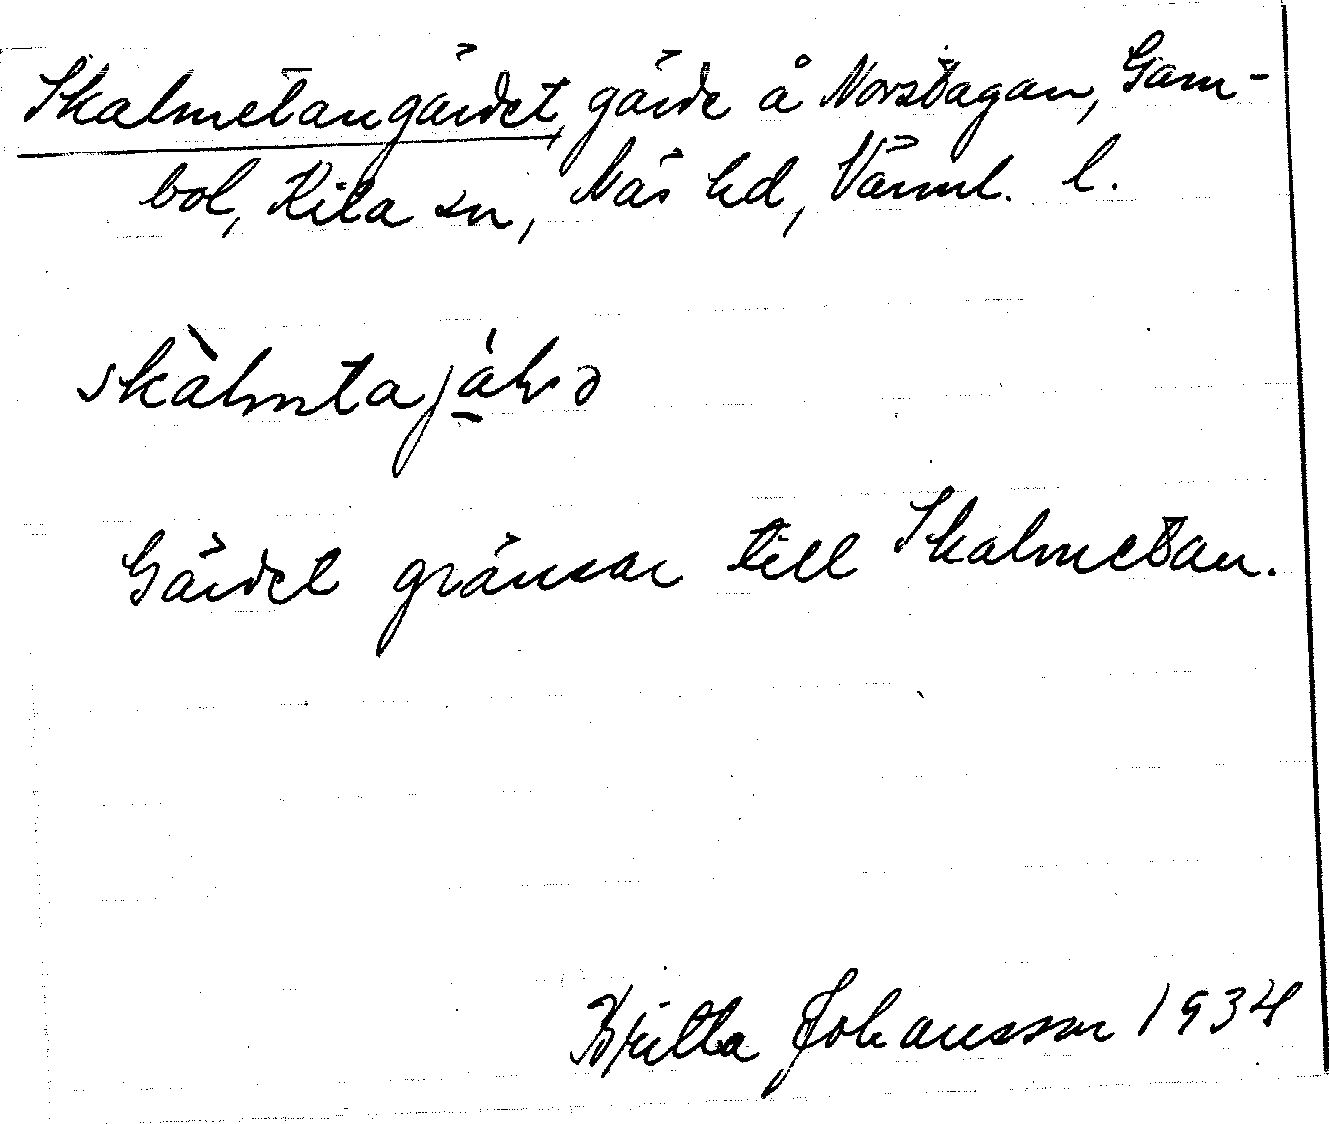 Skalmetangärdet, gärde å Norstagan, Gam-
bol, Kila sn, Näs hd, Värml. l.
skàlmtajáḷsə
Gärdet gränsar till Skalmetan.
Britta Johansson 1934